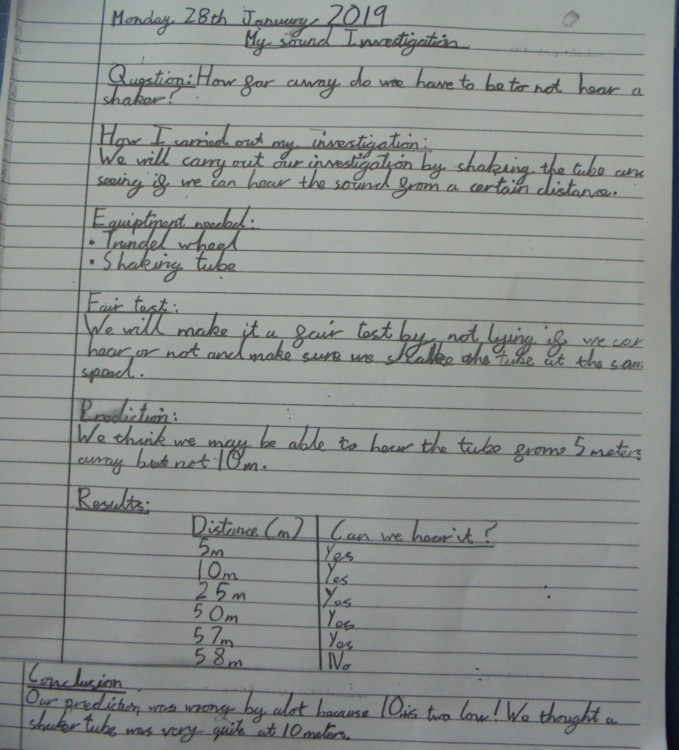 Monday 28th January 2019
My sound Investigation
Question: How far away do we have to be to not hear a
shaker?
How I carried out my investigation:
We will carry out our investigation by shaking the tube and
seeing if we can hear the sound from a certain distance.
Equiptment needed:
• Trundel wheel
• Shaking tube
Fair test:
We will make it a fair test by not lying if we can
hear or not and make sure we shake the tube at the same
speed.
Prediction:
We think we may be able to hear the tube from 5 meters
away but not 10m.
Results:
Distance (m) Can we hear it?
5m Yes
10m Yes
25m Yes
50m Yes
57m Yes
58m No
Conclusion
Our prediction was wrong by alot because 10 is two low! We thought a
shaker tube was very quite at 10 meters.